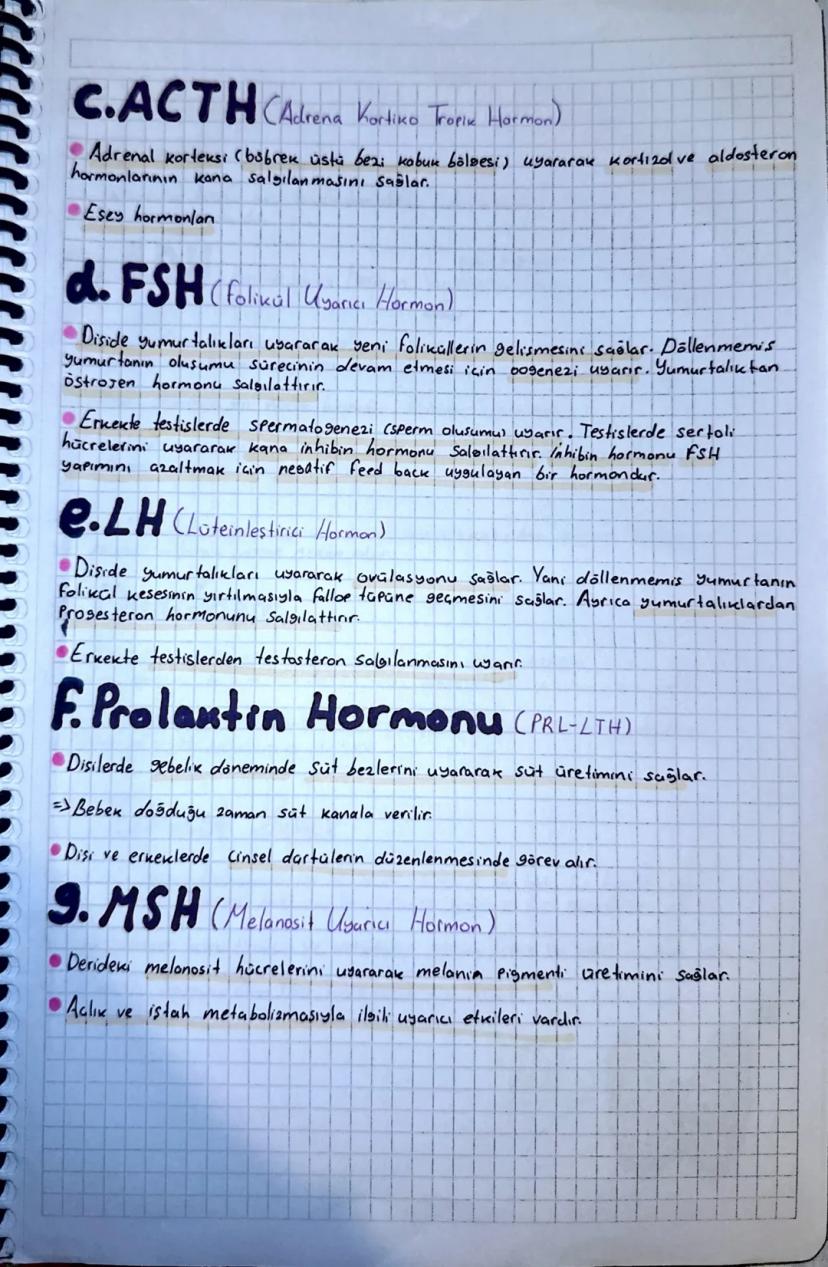 c. ACTH (Adrena Kortiko Tropik Hormon)
Adrenal korteksi (böbrek üstü bezi kabuk bölgesi) uyararak kortizol ve aldosteron
hormonlarının kana salgılanmasını sağlar.
Eşey hormonları
d. FSH (Folikül Uyarıcı Hormon)
Dişide yumurtalıkları uyararak yeni foliküllerin gelişmesini sağlar. Döllenmemiş
yumurtanın oluşumu sürecinin devam etmesi için oogenezi uyarır. Yumurtalıktan
östrojen hormonu salgılattırır.
Erkekte testislerde spermatogenezi (sperm oluşumu) uyarır. Testislerde sertoli
hücrelerini uyararak kana inhibin hormonu salgılattırır. İnhibin hormonu FSH
yapımını azaltmak için negatif feed back uygulayan bir hormondur.
e. LH (Lüteinleştirici Hormon)
Dişide yumurtalıkları uyararak ovülasyonu sağlar. Yani döllenmemiş yumurtanın
folikül kesesinin yırtılmasıyla fallop tüpüne geçmesini sağlar. Ayrıca yumurtalıklardan
Progesteron hormonunu salgılattırır.
Erkekte testislerden testosteron salgılanmasını uyarır.
f. Prolaktin Hormonu (PRL-LTH)
Dişilerde gebelik döneminde süt bezlerini uyararak süt üretimini sağlar.
=> Bebek doğduğu zaman süt kanala verilir.
Dişi ve erkeklerde cinsel dürtülerin düzenlenmesinde görev alır.
g. MSH (Melanosit Uyarıcı Hormon)
Derideki melanosit hücrelerini uyararak melanin pigmenti üretimini sağlar.
Açlık ve iştah metabolizmasıyla ilgili uyarıcı etkileri vardır.